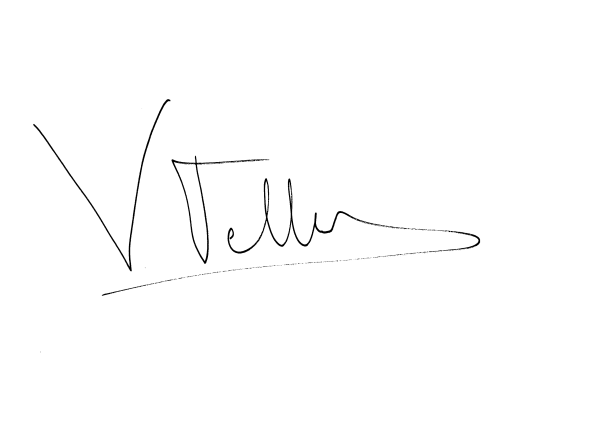 V Teller